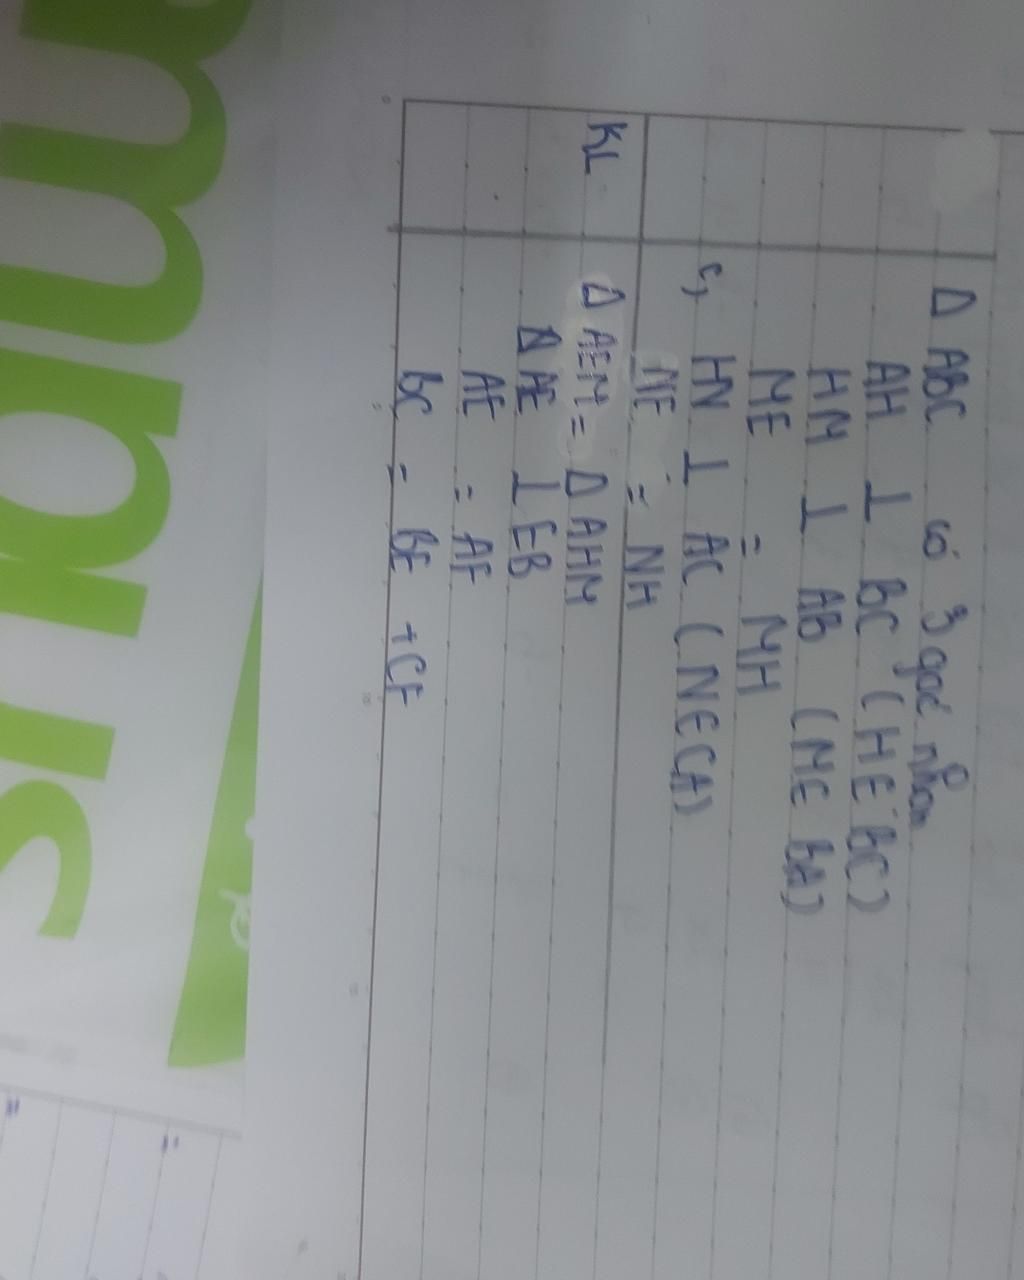 Δ ABC có 3 góc nhọn
AH ⊥ BC (H E BC)
HM ⊥ AB (ME BA)
ME = MH
c, HN ⊥ AC (N E CA)
NF = NH
KL Δ AEM = Δ AHM
Δ AE ⊥ EB
AE = AF
BC = BE + CF
mpus